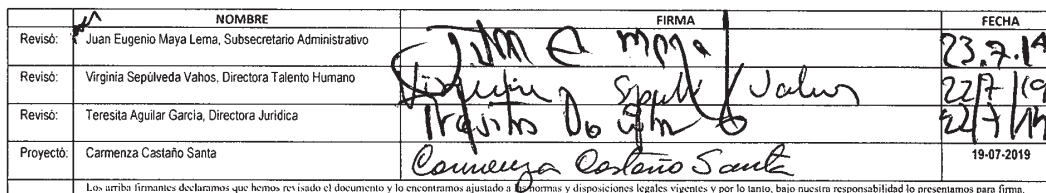 NOMBRE FIRMA FECHA
Revisó: Juan Eugenio Maya Lema, Subsecretario Administrativo 23.7.19
Revisó: Virginia Sepúlveda Vahos, Directora Talento Humano 22/7/19
Revisó: Teresita Aguilar García, Directora Jurídica 22/7/19
Proyectó: Carmenza Castaño Santa Carmenza Castaño Santa 19-07-2019
Los arriba firmantes declaramos que hemos revisado el documento y lo encontramos ajustado a las normas y disposiciones legales vigentes y por lo tanto, bajo nuestra responsabilidad lo presentamos para firma.